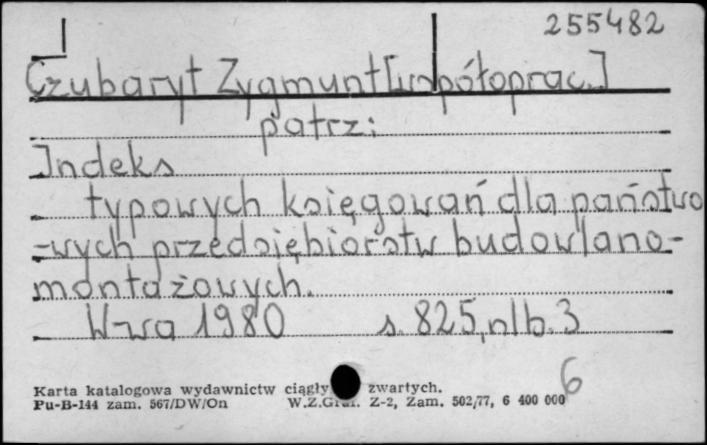 255482
Czubaryt Zygmunt [współoprac.]
patrz:
Indeks
typowych księgowań dla państwo
-wych przedsiębiorstw budowlano-
montażowych.
W-wa 1980 s. 825, nlb. 3
6
Karta katalogowa wydawnictw ciągły zwartych.
Pu-B-144 zam. 567/DW/On W.Z.Graf. Z-2, Zam. 502/77, 6 400 000